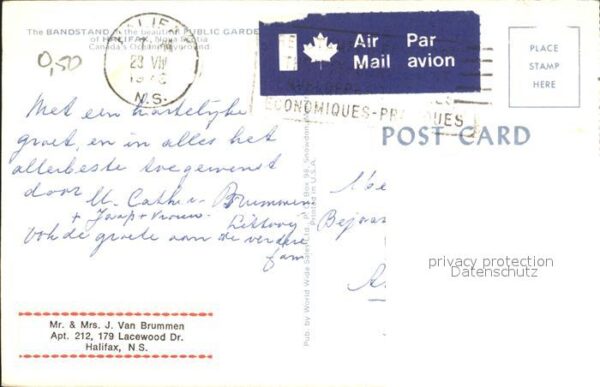 The BANDSTAND in the beautiful PUBLIC GARDE
of HALIFAX, Nova Scotia
Canada's Ocean Playground
0,50
HALIFAX
28 VIII
N.S.
Air Par
Mail avion
ECONOMIQUES-PRATIQUES
PLACE
STAMP
HERE
POST CARD
Met een hartelijke
groet, en in alles het
allerbeste toegewenst
door
M. Cathi v. Brummen
+ Jaap + Vrouw.
Ook de groete aan de verdere
fam
Pub. by World Wide Sales Ltd., Box 98, Snowdon
Printed in U.S.A.
privacy protection
Datenschutz
Mr. & Mrs. J. Van Brummen
Apt. 212, 179 Lacewood Dr.
Halifax, N.S.